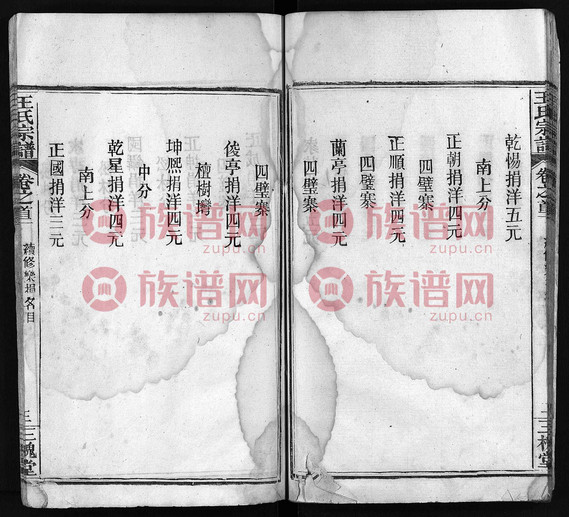 王氏宗譜
卷之首
三槐堂
乾惕捐洋五元
南上分
正朝捐洋四元
四璧寨
正順捐洋四元
四璧寨
蘭亭捐洋四元
四璧寨
四璧寨
俊亭捐洋四元
檀樹塆
坤熈捐洋四元
中分
乾星捐洋四元
南上分
正國捐洋三元
王氏宗譜
卷之首
續修樂捐名目
三槐堂
族谱网
zupu.cn
族谱网
zupu.cn
族谱网
zupu.cn
族谱网
zupu.cn